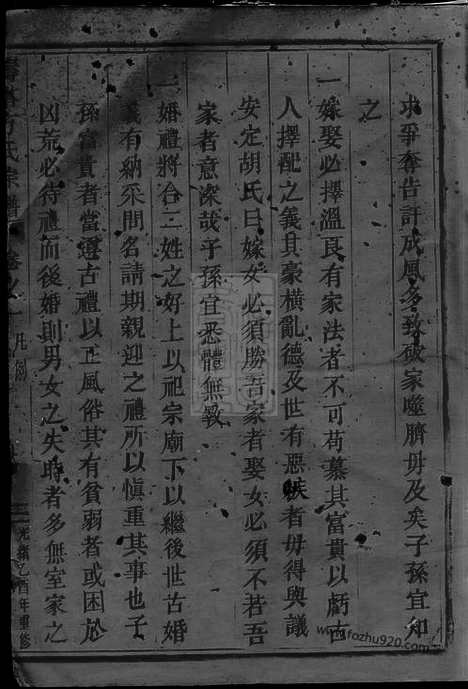 求爭奪告訐成風多致破家噬臍毋及矣子孫宜知
之
一嫁娶必擇溫良有家法者不可苟慕其富貴以虧古
人擇配之義其豪橫亂德及世有惡疾者毋得與議
安定胡氏曰嫁女必須勝吾家者娶女必須不若吾
家者意深哉子孫宜悉體無斁
一婚禮將合二姓之好上以祀宗廟下以繼後世古婚
義有納采問名請期親迎之禮所以慎重其事也子
孫富貴者當遵古禮以正風俗其有貧弱者或困於
凶荒必待禮而後婚則男女之失時者多無室家之
氏宗譜 卷之一 凡例 光緒乙酉年重修
www.fozhu920.com